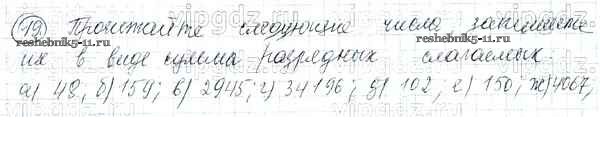 19) Прочитайте следующие числа запишите
их в виде суммы разрядных слагаемых.
а) 48, б) 159; в) 2945; г) 34196; д) 102; е) 150; ж) 4067;
reshebnik5-11.ru
reshebnik5-11.ru